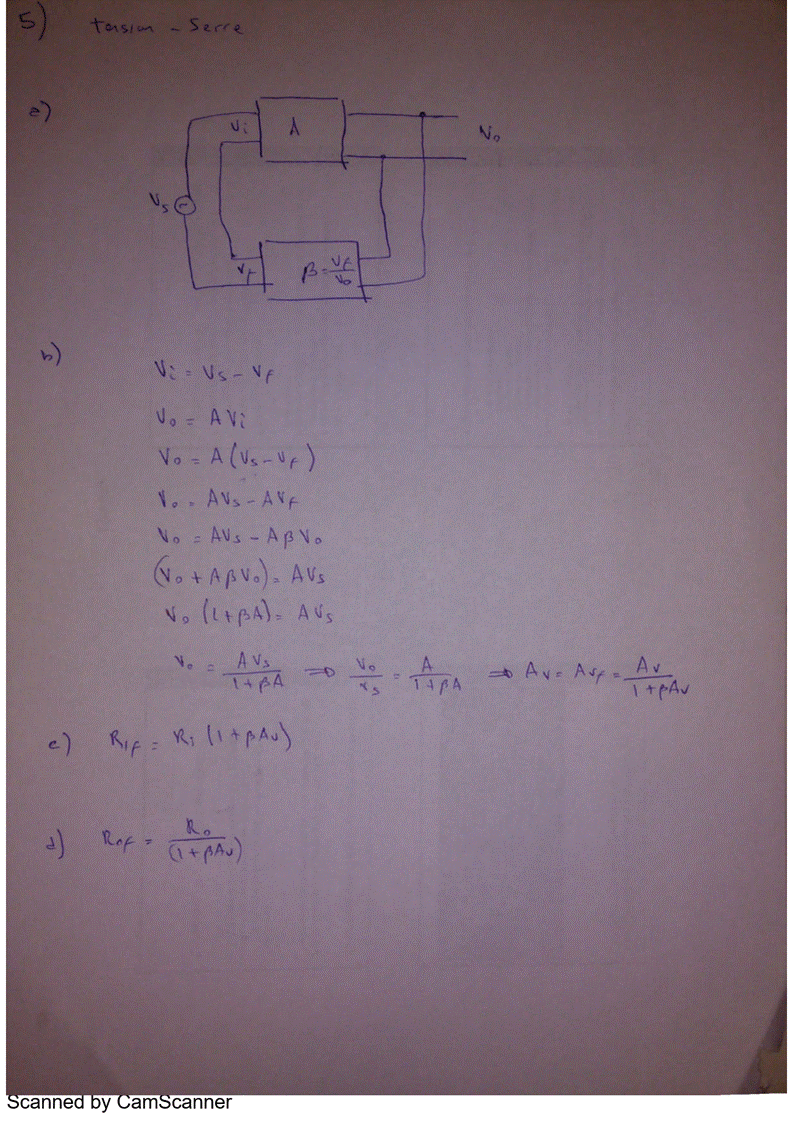 5) Tension - Serie
a)
Vi A Vo
Vs
Vf β = Vf/Vo
b)
Vi = Vs - Vf
Vo = A Vi
Vo = A (Vs - Vf)
Vo = AVs - AVf
Vo = AVs - AβVo
(Vo + AβVo) = AVs
Vo (1+βA) = AVs
Vo = AVs/(1+βA) ⇒ Vo/Vs = A/(1+βA) ⇒ Av = Avf = Av/(1+βAv)
c) Rif = Ri (1+βAv)
d) Rof = Ro/(1+βAv)
Scanned by CamScanner